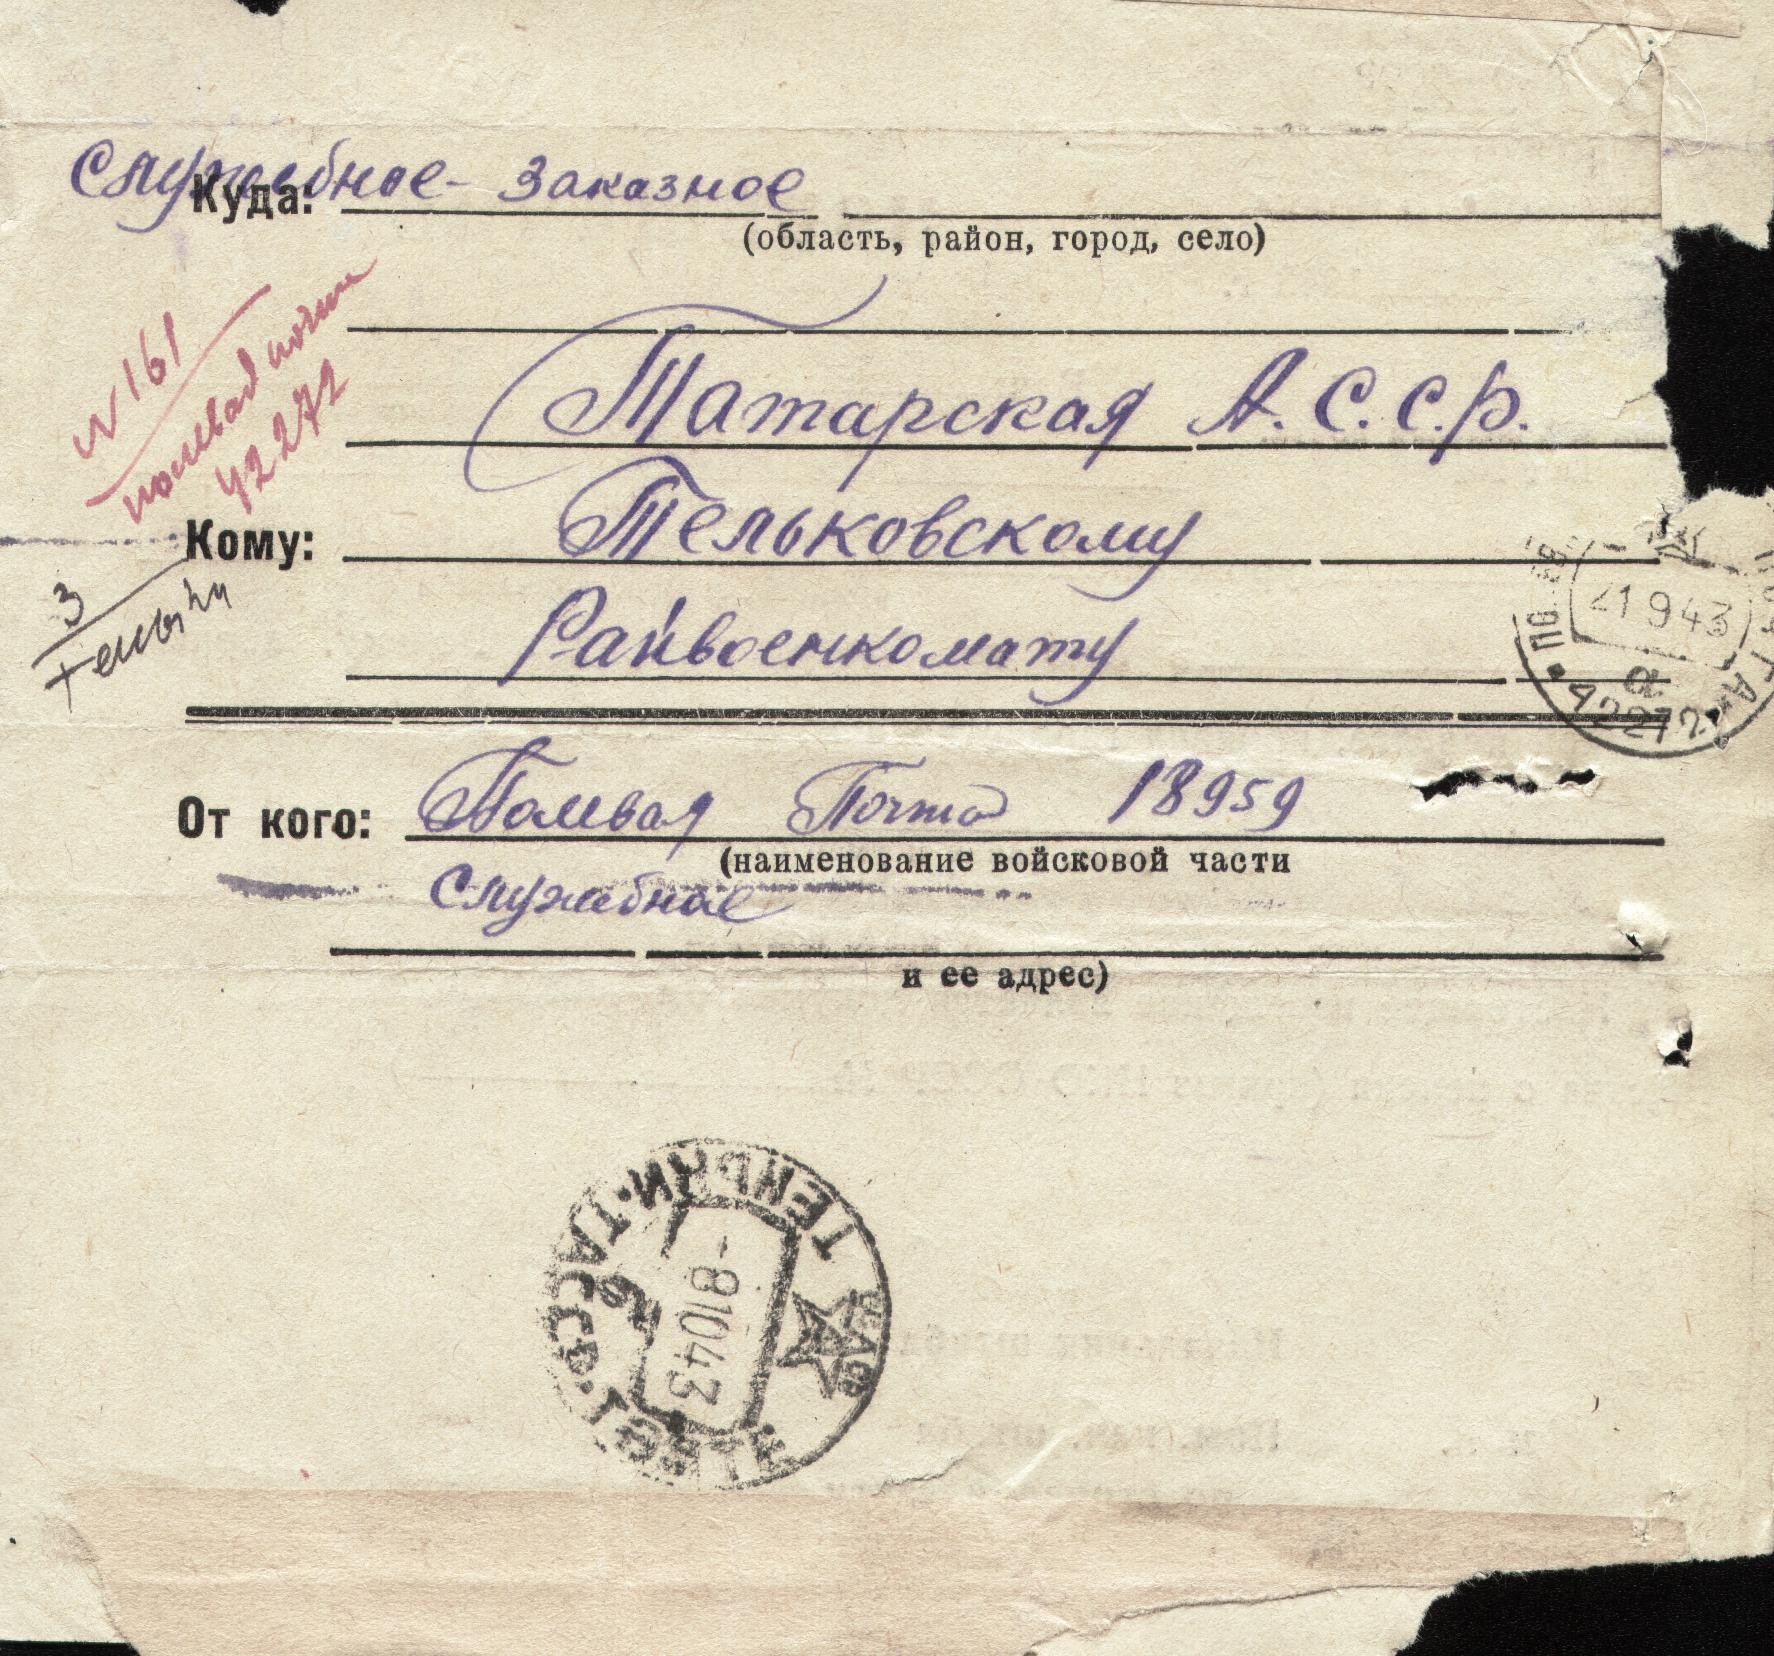 Служебное - заказное
Куда:
(область, район, город, село)
N 161
полевая почта
42272
Татарская А.С.С.Р.
Кому: Тельковскому
3
Теньки
Райвоенкомату
21 9 43
а
42272
От кого: Полевая Почта 18959
(наименование войсковой части
Служебное
и ее адрес)
ТЕНЬКИ · ТАССР ·
-8 10 43